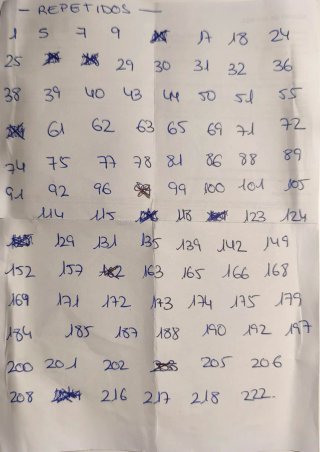 - REPETIDOS -
1 5 7 9 17 18 24
25 29 30 31 32 36
38 39 40 43 44 50 51 55
61 62 63 65 69 71 72
74 75 77 78 81 86 88 89
91 92 96 99 100 101 105
114 115 118 123 124
129 131 135 139 142 149
152 157 163 165 166 168
169 171 172 173 174 175 179
184 185 187 188 190 192 197
200 201 202 205 206
208 216 217 218 222